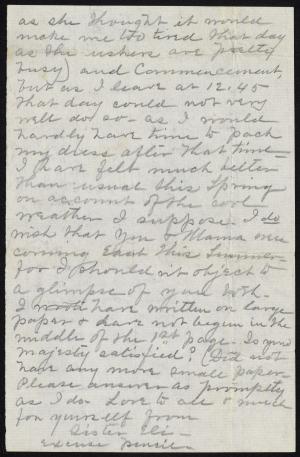 as she thought it would
make me too tired that day
as the ushers are pretty
busy) and Commencement,
but as I leave at 12.45
that day could not very
well do so - as I would
hardly have time to pack
my dress after that time -
I have felt much better
than usual this Spring
on account of the cool
weather I suppose. I do
wish that you & Mama were
coming East this Summer
for I should not object to
a glimpse of you both.
I wrote have written on large
paper & have not begun in the
middle of the 1st page. Is your
majesty satisfied"? (Did not
have any more small paper.
Please answer as promptly
as I do. Love to all & much
for yourself from
Sister Eli -
Excuse pencil -